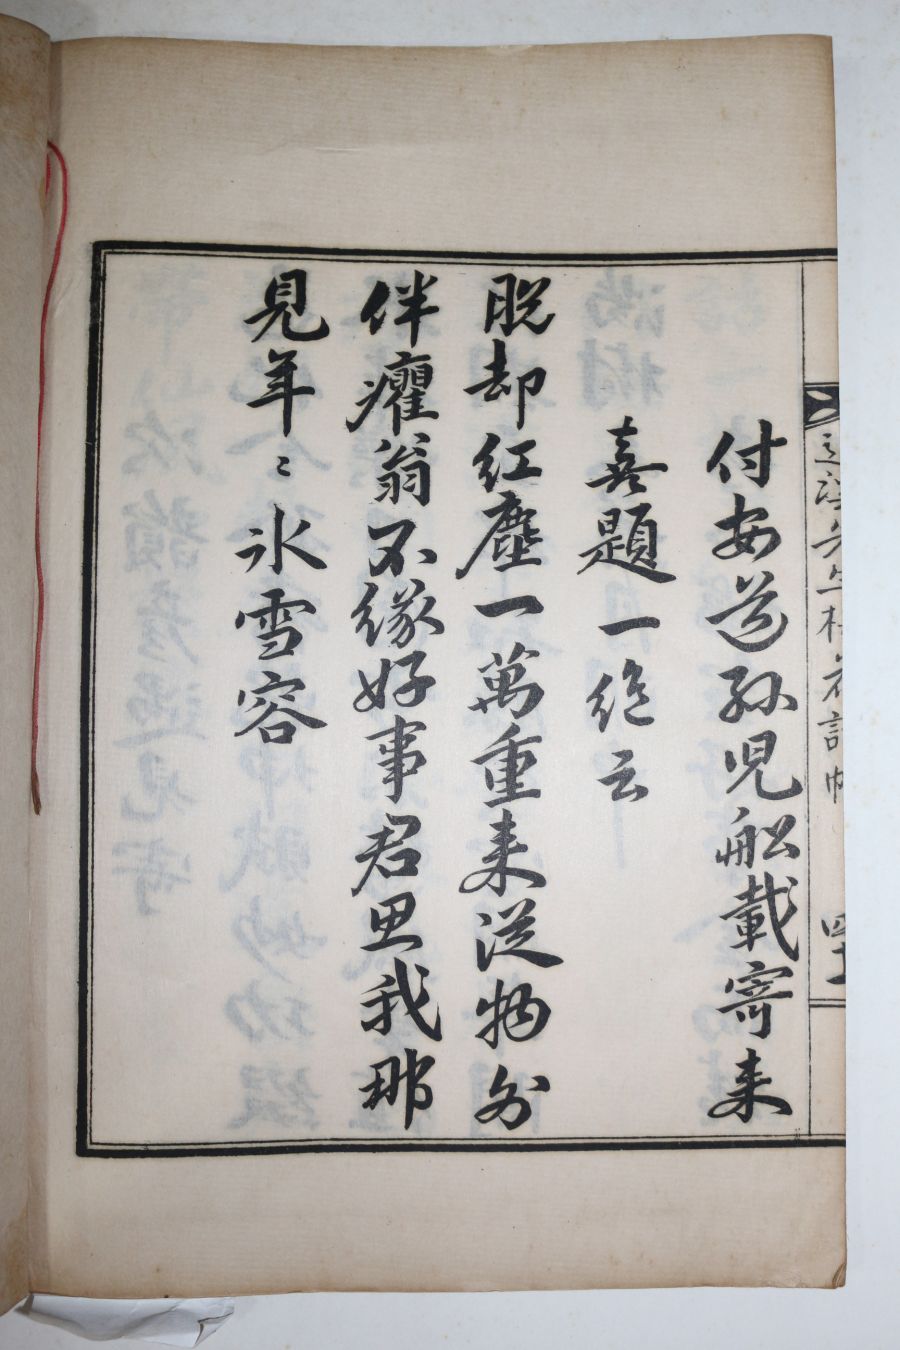 付安道孫児舩載寄来
喜題一絶云
脱却紅塵一萬重来從物外
伴癯翁不緣好事君思我那
見年〻氷雪容
退溪先生梅花詩帖
四十一